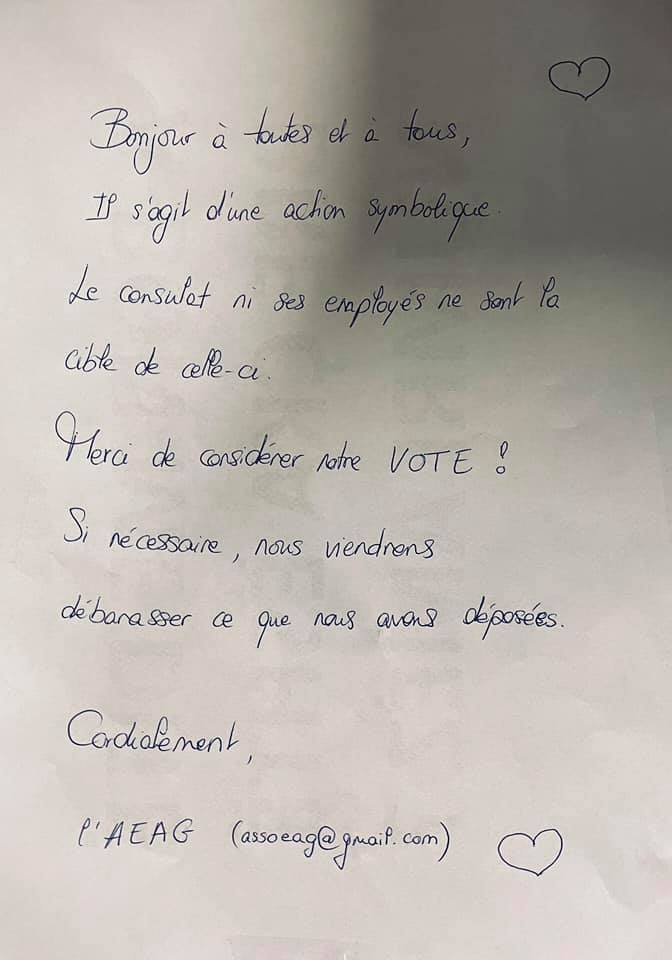 Bonjour à toutes et à tous,
Il s'agit d'une action symbolique.
Le consulat ni ses employés ne sont la
cible de celle-ci.
Merci de considérer notre VOTE !
Si nécessaire, nous viendrons
débarasser ce que nous avons déposées.
Cordialement,
l'AEAG (assoeag@gmail.com)